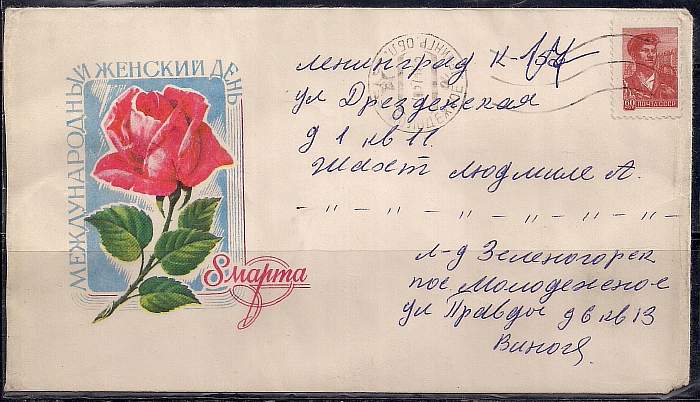 МЕЖДУНАРОДНЫЙ ЖЕНСКИЙ ДЕНЬ
8 марта
60 ПОЧТА СССР
Ленинград К-
ул Дрезденская
д 1 кв 11.
Людмиле А.
— " — " — " — " — " — " —
Л-д Зеленогорск
пос Молодежное
ул Правды д 6 кв 13